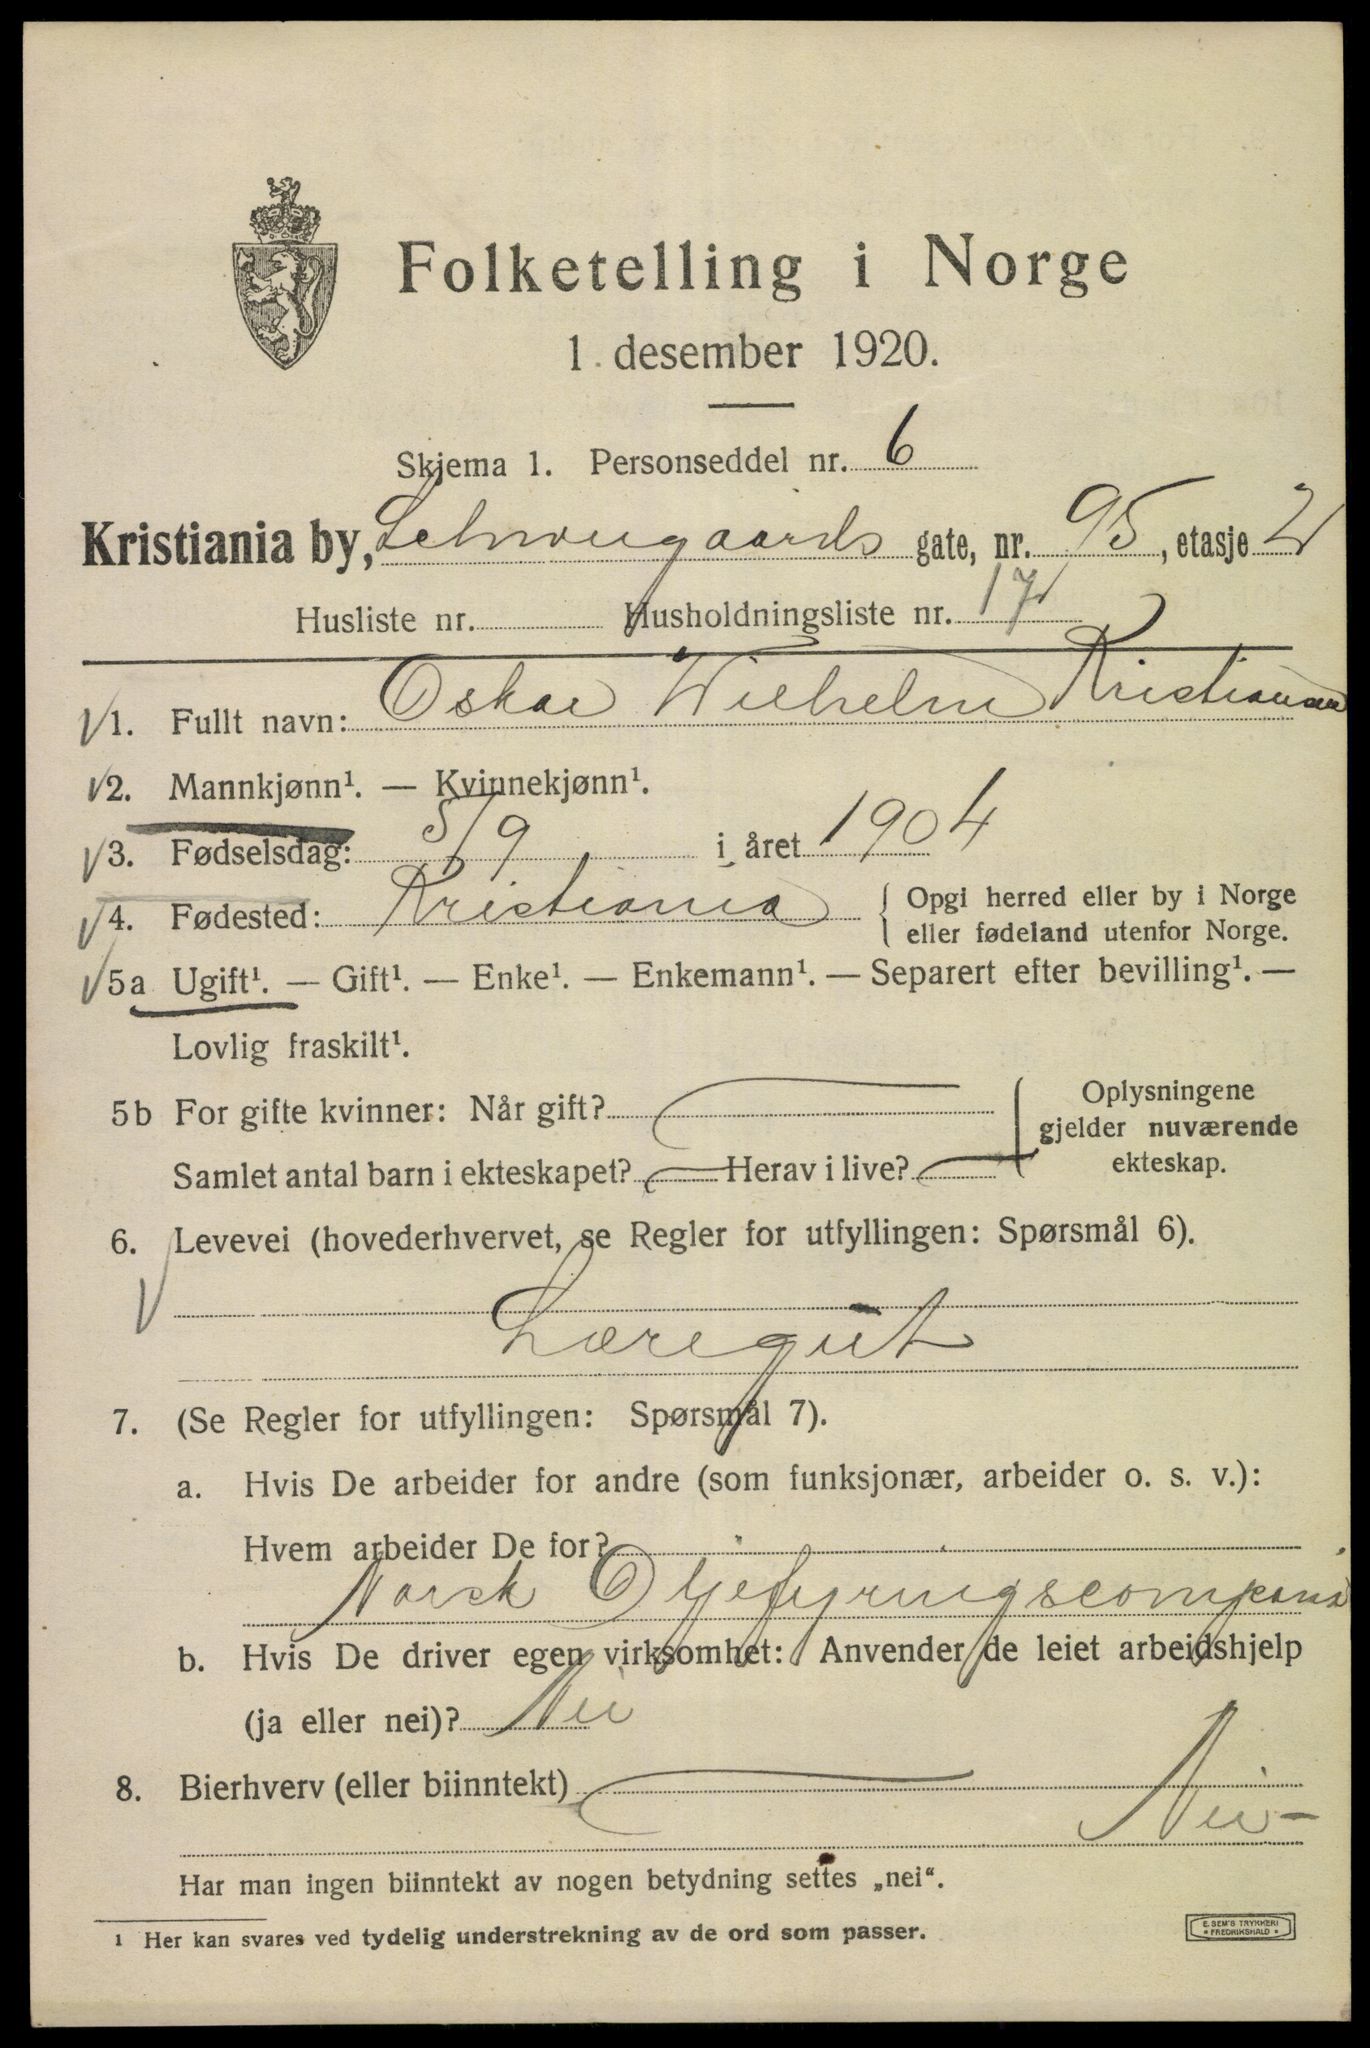 Folketelling i Norge
1. desember 1920.
Skjema 1. Personseddel nr. 6
Kristiania by, Schweigaards gate, nr. 95, etasje 2
Husliste nr. Husholdningsliste nr. 17
1. Fullt navn: Oskar Wilhelm Kristiansen
2. Mannkjønn¹. — Kvinnekjønn¹.
3. Fødselsdag: 5/9 i året 1904
4. Fødested: Kristiania { Opgi herred eller by i Norge
eller fødeland utenfor Norge.
5a Ugift¹. — Gift¹. — Enke¹. — Enkemann¹. — Separert efter bevilling¹. —
Lovlig fraskilt¹.
5b For gifte kvinner: Når gift? Oplysningene
gjelder nuværende
Samlet antal barn i ekteskapet? Herav i live? ekteskap.
6. Levevei (hovederhvervet, se Regler for utfyllingen: Spørsmål 6).
Læregut
7. (Se Regler for utfyllingen: Spørsmål 7).
a. Hvis De arbeider for andre (som funksjonær, arbeider o. s. v.):
Hvem arbeider De for?
Norsk Oljefyringscompani
b. Hvis De driver egen virksomhet: Anvender de leiet arbeidshjelp
(ja eller nei)? Nei
8. Bierhverv (eller biinntekt) Nei —
Har man ingen biinntekt av nogen betydning settes „nei“.
¹ Her kan svares ved tydelig understrekning av de ord som passer.
E. SEM'S TRYKKERI
* FREDRIKSHALD *